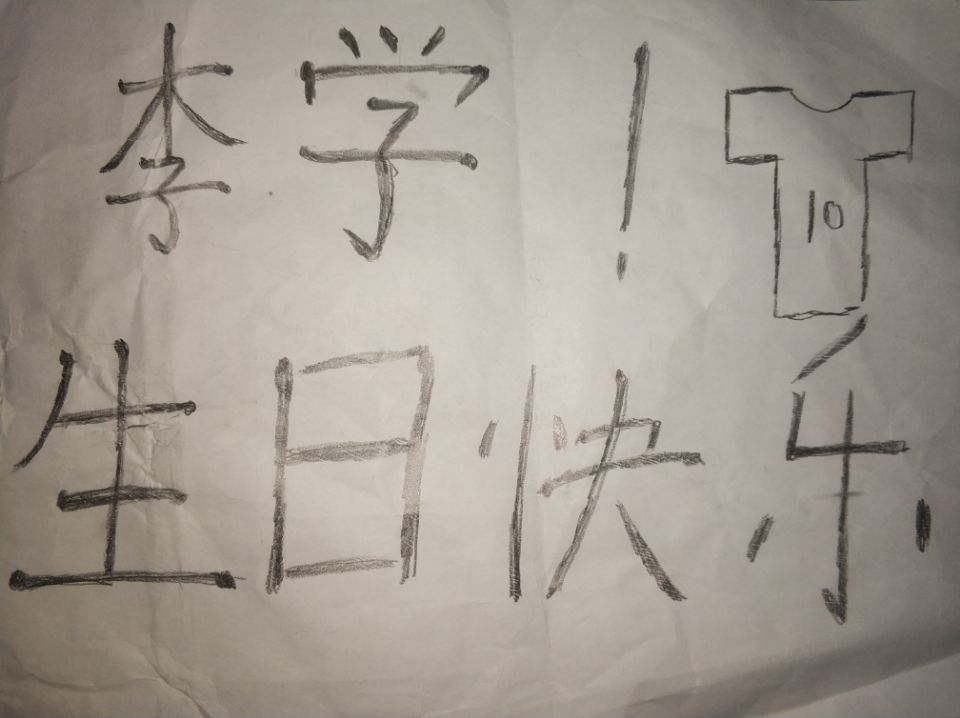 李学!
10
生日快乐